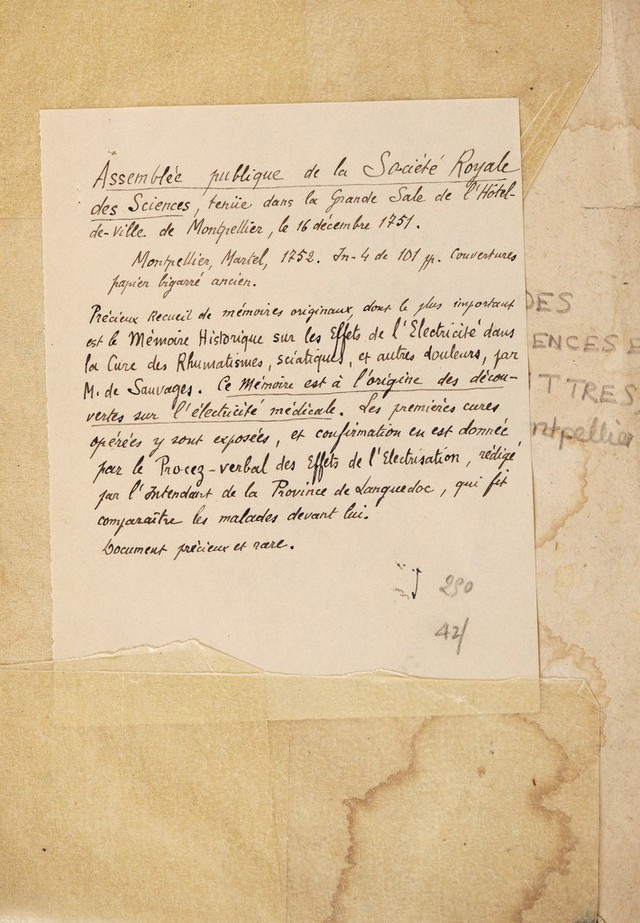 Assemblée publique de la Société Royale
des Sciences, tenüe dans la Grande Sale de l'Hôtel-
de-Ville de Montpellier, le 16 décembre 1751.
Montpellier, Martel, 1752. In-4 de 101 pp. Couvertures
papier bigarré ancien.
Précieux recueil de mémoires originaux, dont le plus important
est le Mémoire Historique sur les Effets de l'Electricité dans
la Cure des Rhumatismes, sciatiques, et autres douleurs, par
M. de Sauvages. Ce Mémoire est à l'origine des décou-
vertes sur l'électricité médicale. Les premières cures
opérées y sont exposées, et confirmation en est donnée
par le Procez-verbal des Effets de l'Electrisation, rédigé
par l'Intendant de la Province de Languedoc, qui fit
comparaître les malades devant lui.
Document précieux et rare.
290
42/
DES
ENCES E
TTRES
ntpellier